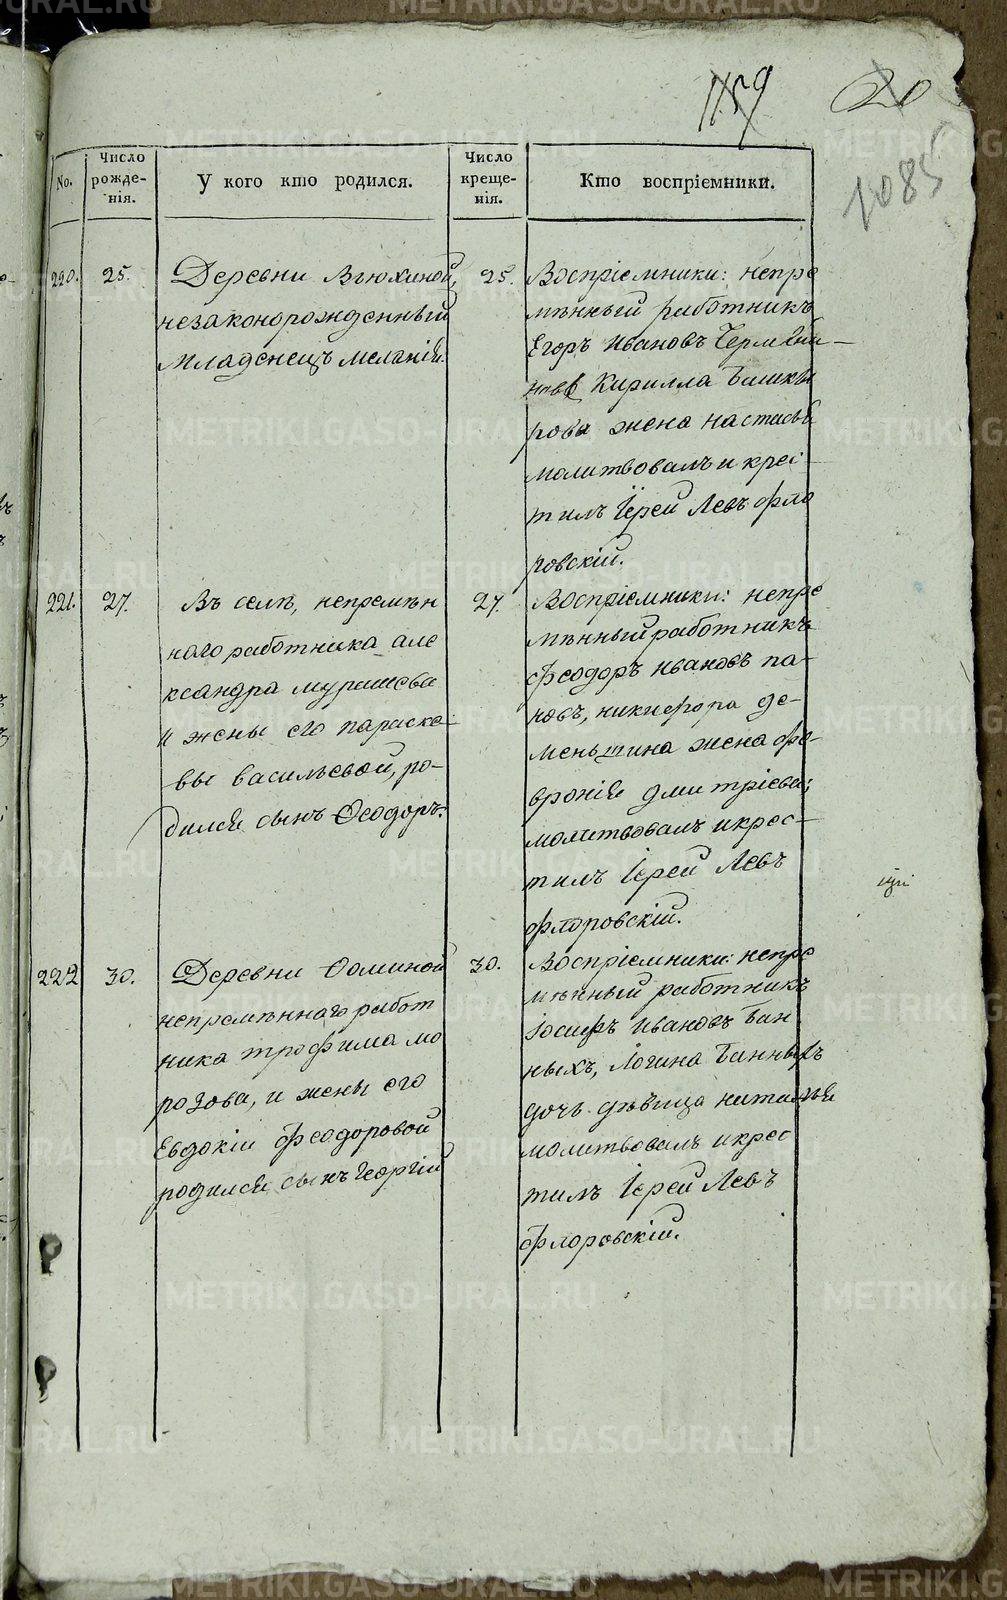 1159
20
1085
No.
Число рожде-нія.
У кого кто родился.
Число креще-нія.
Кто воспріемники.
220.
25.
Деревни Вьюхиной,
незаконорожденный
младенецъ Меланія.
25.
Воспріемники: непре
мѣнный работникъ
Егоръ Ивановъ
Кирилла Башки
рова жена Настасья
молитвовалъ и крес
тилъ Іерей Левъ Фло
ровскій.
221.
27.
Въ селѣ, непремѣн
наго работника Але
ксандра Мурашева
и жены его Параске
вы Васильевой, ро-
дился сынъ Ѳеодоръ.
27.
Воспріемники: непре
мѣнный работникъ
Феодоръ Ивановъ Па-
новъ, Никифора Де-
меньшина жена Фе-
вронія Дмитріева;
молитвовалъ и крес-
тилъ Іерей Левъ
Флоровскій.
222
30.
Деревни Фоминой
непремѣннаго работ
ника Трофима Мо
розова, и жены его
Евдокіи Феодоровой
родился сынъ Георгій
30.
Воспріемники: непре
мѣнный работникъ
Іосифъ Ивановъ Бан
ныхъ, Логина Банныхъ
дочь дѣвица Наталья
молитвовалъ и крес
тилъ Іерей Левъ
Флоровскій.
METRIKI.GASO-URAL.RU